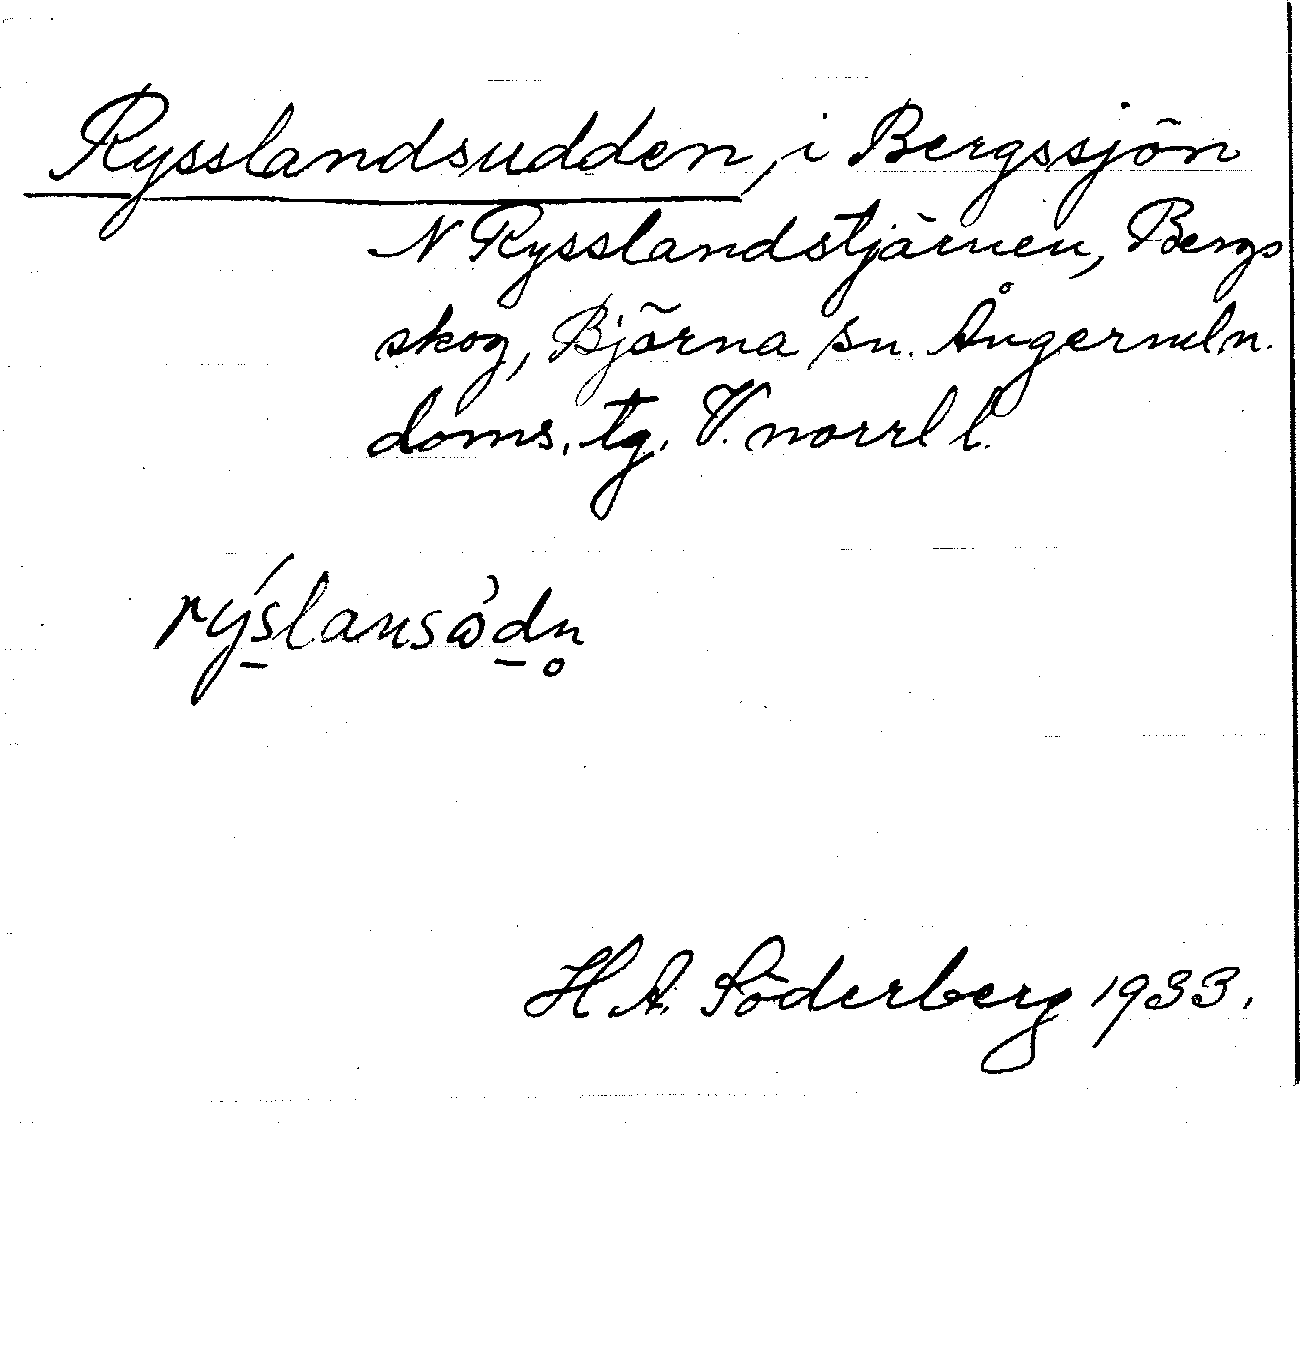 Rysslandsudden, i Bergssjön
N Rysslandstjärnen, Bergs
skog, Björna sn. Ångermln.
doms. tg. V. norrl l.
rýs̠lansωd̠n̥
H. A. Söderberg 1933.